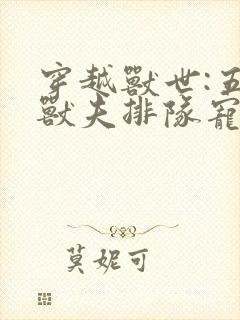 穿越獸世:五
獸夫排隊寵
莫妮可